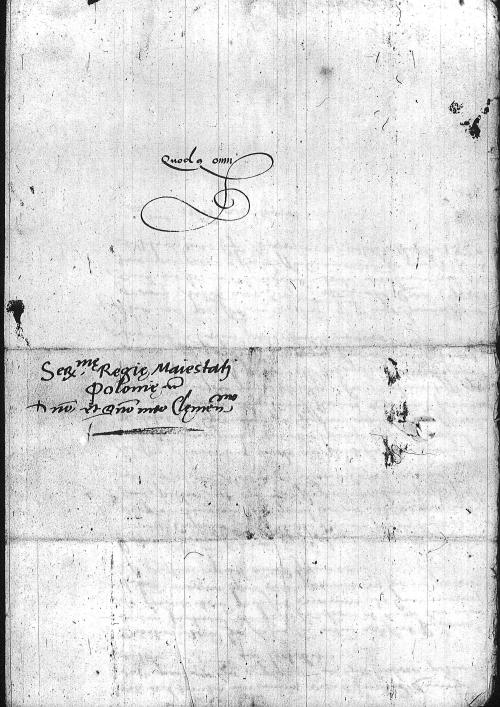 Quod omni
Ser.me Regię Maiestati
Polonię
Dno et Dno meo Clemen.mo